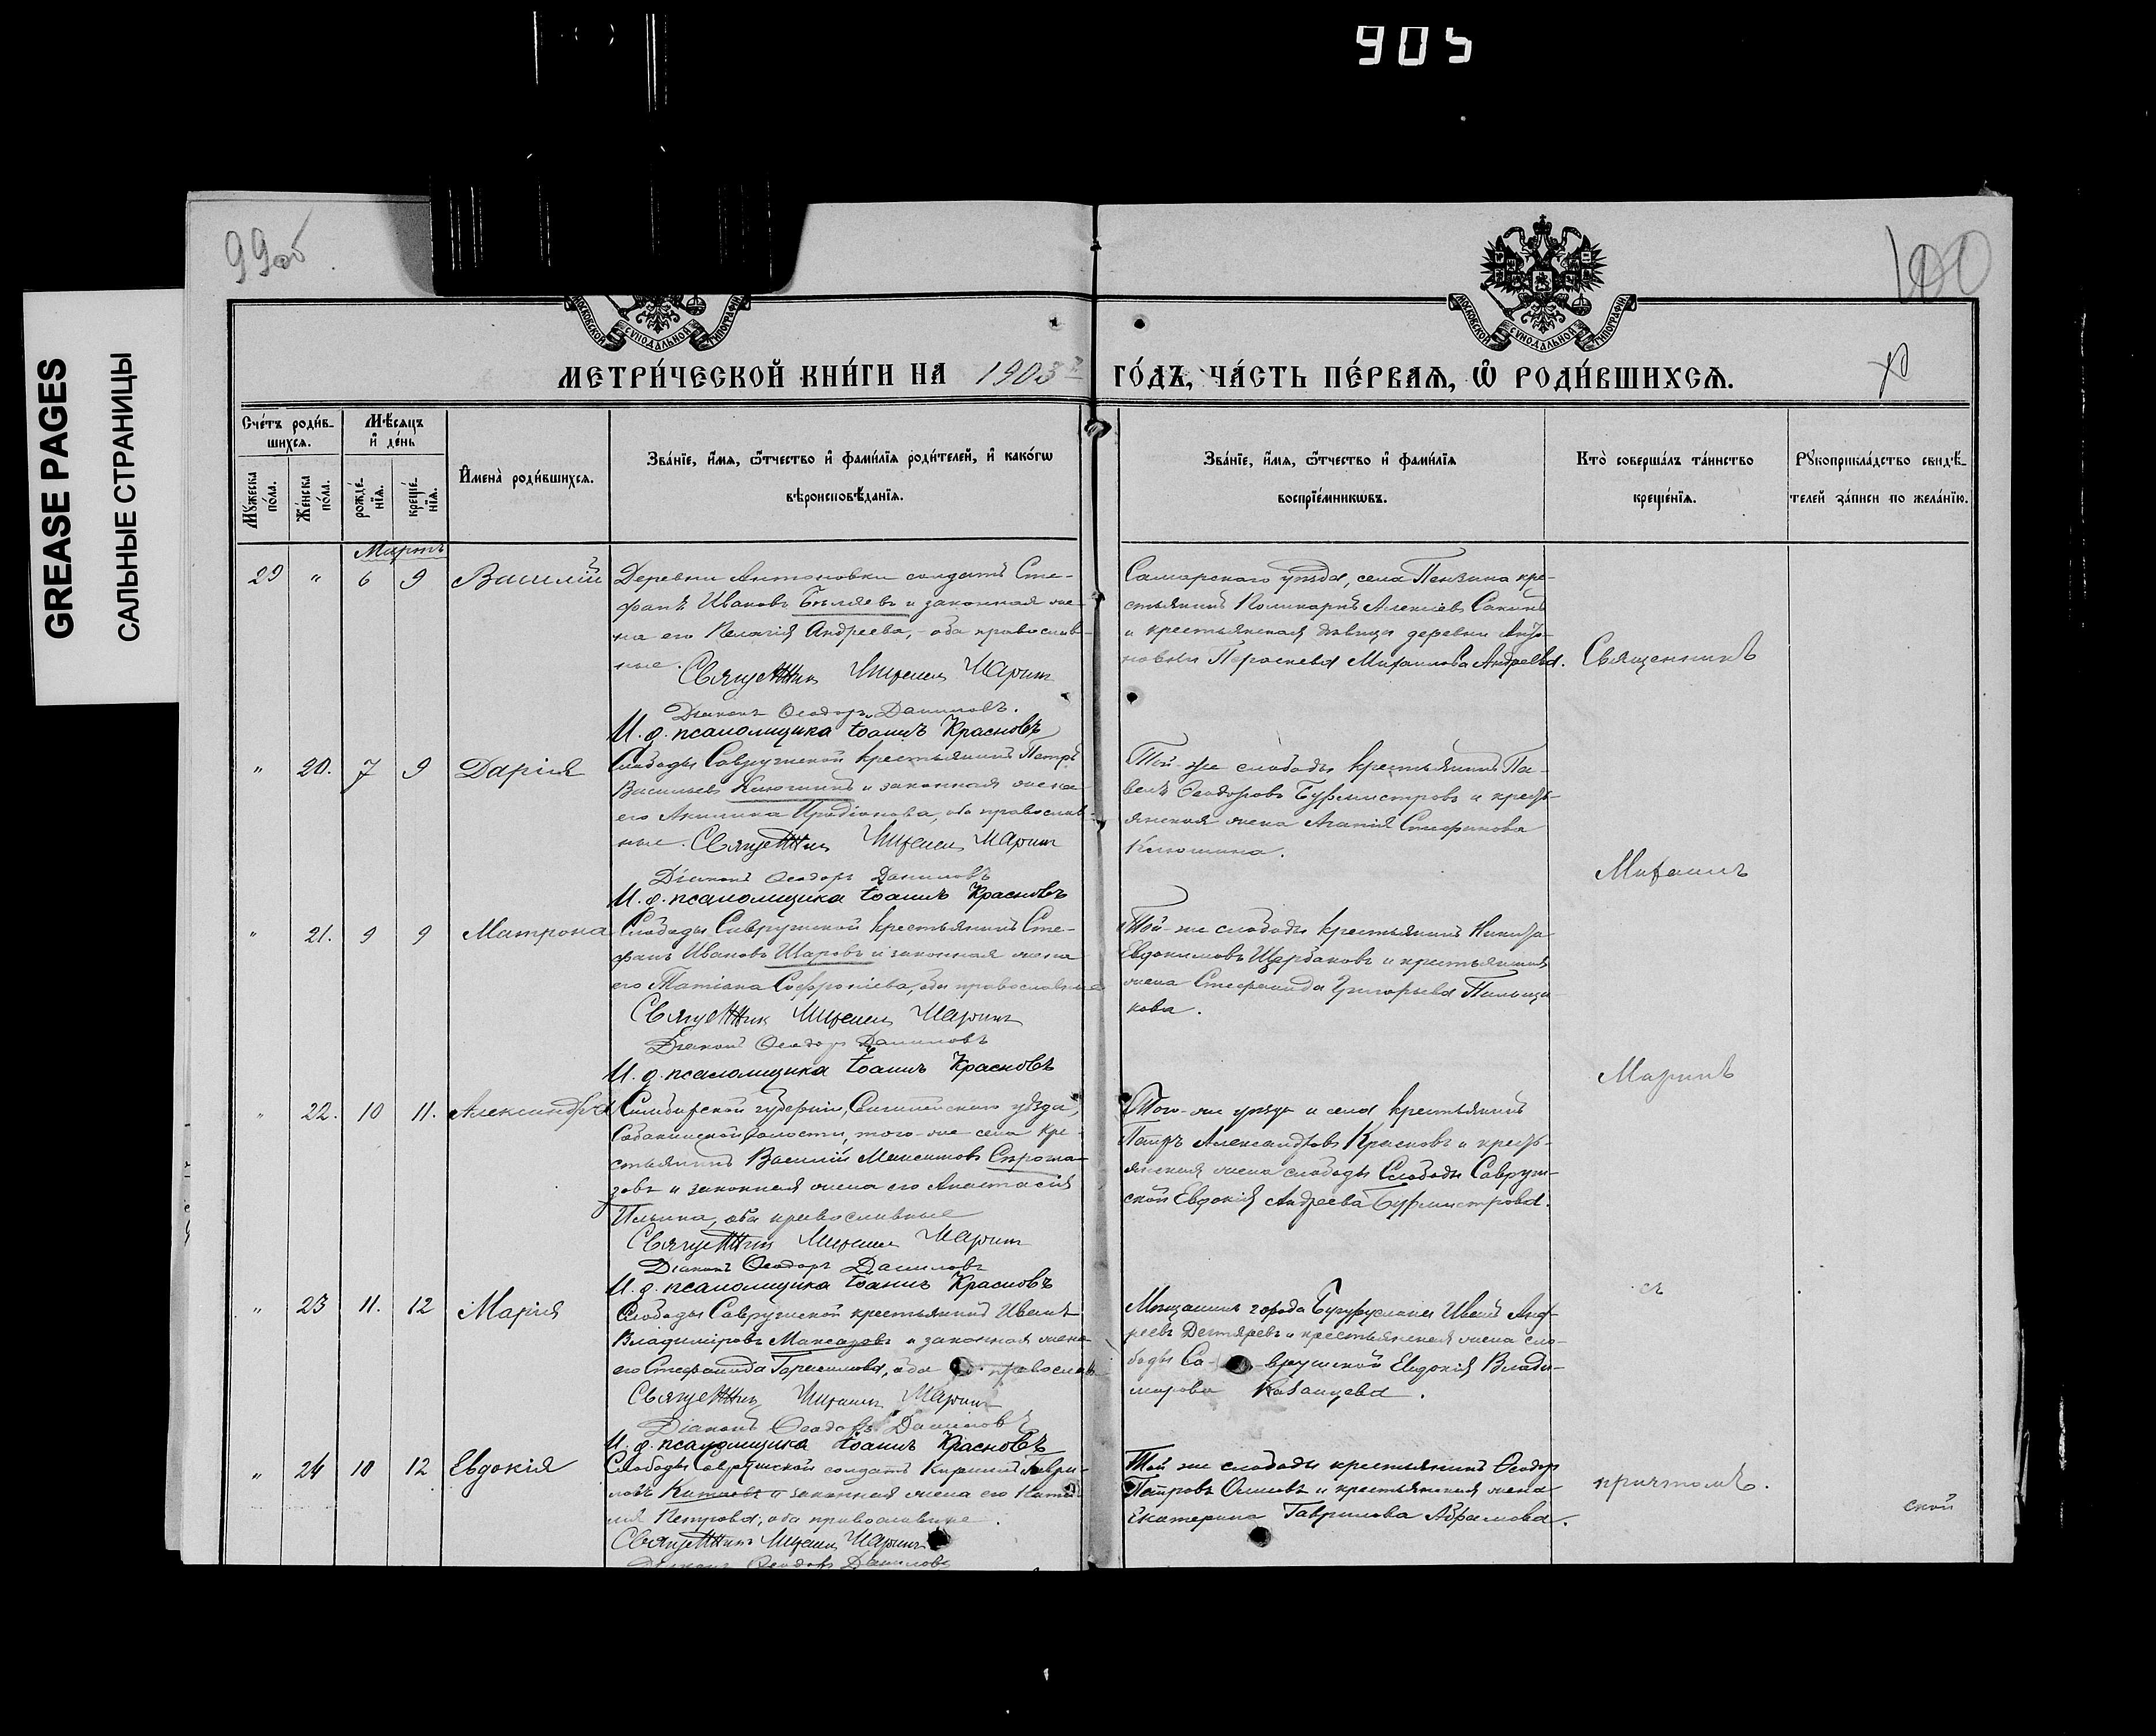 905
99об
100
GREASE PAGES
САЛЬНЫЕ СТРАНИЦЫ
МОСКОВСКОЙ СѴНОДАЛЬНОЙ ТИПОГРАФІИ
МОСКОВСКОЙ СѴНОДАЛЬНОЙ ТИПОГРАФІИ
МЕТРИ́ЧЕСКОЙ КНИ́ГИ НА 1903 ГО́ДЪ, ЧА́СТЬ ПЕ́РВАЯ, Ѡ РОДИ́ВШИХСЯ.
Сче́тъ роди́в-
шихся.
Мѣ́сяцъ
и де́нь
Мꙋ́жеска
по́ла.
Же́нска
по́ла.
рожде́-
нїя.
креще́-
нїя.
И҆мена̀ роди́вшихся.
Зва́нїе, и҆́мя, ѻ҆́тчество и҆ фами́лїя роди́телей, и҆ како́гѡ
вѣроисповѣ́данїя.
Зва́нїе, и҆́мя, ѻ҆́тчество и҆ фами́лїя
воспрїе́мникѡвъ.
Кто̀ соверша́лъ та́инство
креще́нїя.
Рꙋкоприкла́дство свидѣ́-
телей за́писи по жела́нїю.
Мартъ
29 " 6 9 Василій
Деревни Антоновки солдатъ Сте-
фанъ Ивановъ Бѣляевъ и законная же-
на его Пелагія Андреева, - оба православ-
ные.
Священник Михаил Марин
Діаконъ Ѳеодоръ Даниловъ.
И. д. псаломщика Іоаннъ Красновъ
Самарскаго уѣзда, села Пензина кре-
стьянинъ Поликарпъ Алексѣевъ Санинъ
и крестьянская дѣвица деревни Анто-
новки Параскева Михаилова Андреева.
Священникъ
" 20. 7 9 Дарія
Слободы Саврушской крестьянинъ Петръ
Васильевъ Клюшинъ и законная жена
его Акилина Иродіонова, оба православ-
ные. Священник Михаил Марин
Діаконъ Ѳеодоръ Даниловъ
И. д. псаломщика Іоаннъ Красновъ
Той-же слободы крестьянинъ Па-
велъ Ѳеодоровъ Бурмистровъ и кресть-
янская жена Агапія Стефанова
Клюшина.
Михаилъ
" 21. 9 9 Матрона
Слободы Саврушской крестьянинъ Сте-
фанъ Ивановъ Шаровъ и законная жена
его Татіана Софроніева, оба православные
Священник Михаил Марин
Діаконъ Ѳеодоръ Даниловъ
И. д. псаломщика Іоаннъ Красновъ
Той-же слободы крестьянинъ Никита
Евдокимовъ Щербаковъ и крестьянская
жена Стефанида Григорьева Пильщи-
кова.
Маринъ
" 22. 10 11. Александра
Симбирской губерніи, уѣзда,
волости, того-же села кре-
стьянинъ Василій Максимовъ
и законная жена его Анастасія
Ильина, оба православные
Священник Михаил Марин
Діаконъ Ѳеодоръ Даниловъ
И. д. псаломщика Іоаннъ Красновъ
Того-же уѣзда и села крестьянинъ
Петръ Александровъ Красновъ и кресть-
янская жена слободы Слободы Савруш-
ской Евдокія Андреева Бурмистрова.
съ
" 23 11. 12 Марія
Слободы Саврушской крестьянинъ Иванъ
Владиміровъ Максазовъ и законная жена
его Стефанида Герасимова, оба православ
Священник Михаил Марин
Діаконъ Ѳеодоръ Даниловъ
И. д. псаломщика Іоаннъ Красновъ
Мѣщанинъ города Бугуруслана Иванъ Анд-
реевъ Дегтяревъ и крестьянская жена сло-
боды Са-врушской Евдокія Влади-
мірова Казанцева.
" 24 10 12 Евдокія
Слободы Саврушской солдатъ Кириллъ Гаври-
ловъ Китаевъ и законная жена его
Петрова, оба православные.
Священникъ Михаил Марин
Діаконъ Ѳеодоръ Даниловъ
Той же слободы крестьянинъ Ѳеодор
Петровъ и крестьянская жена
Екатерина Гаврилова Абрамова.
причтомъ.
ской